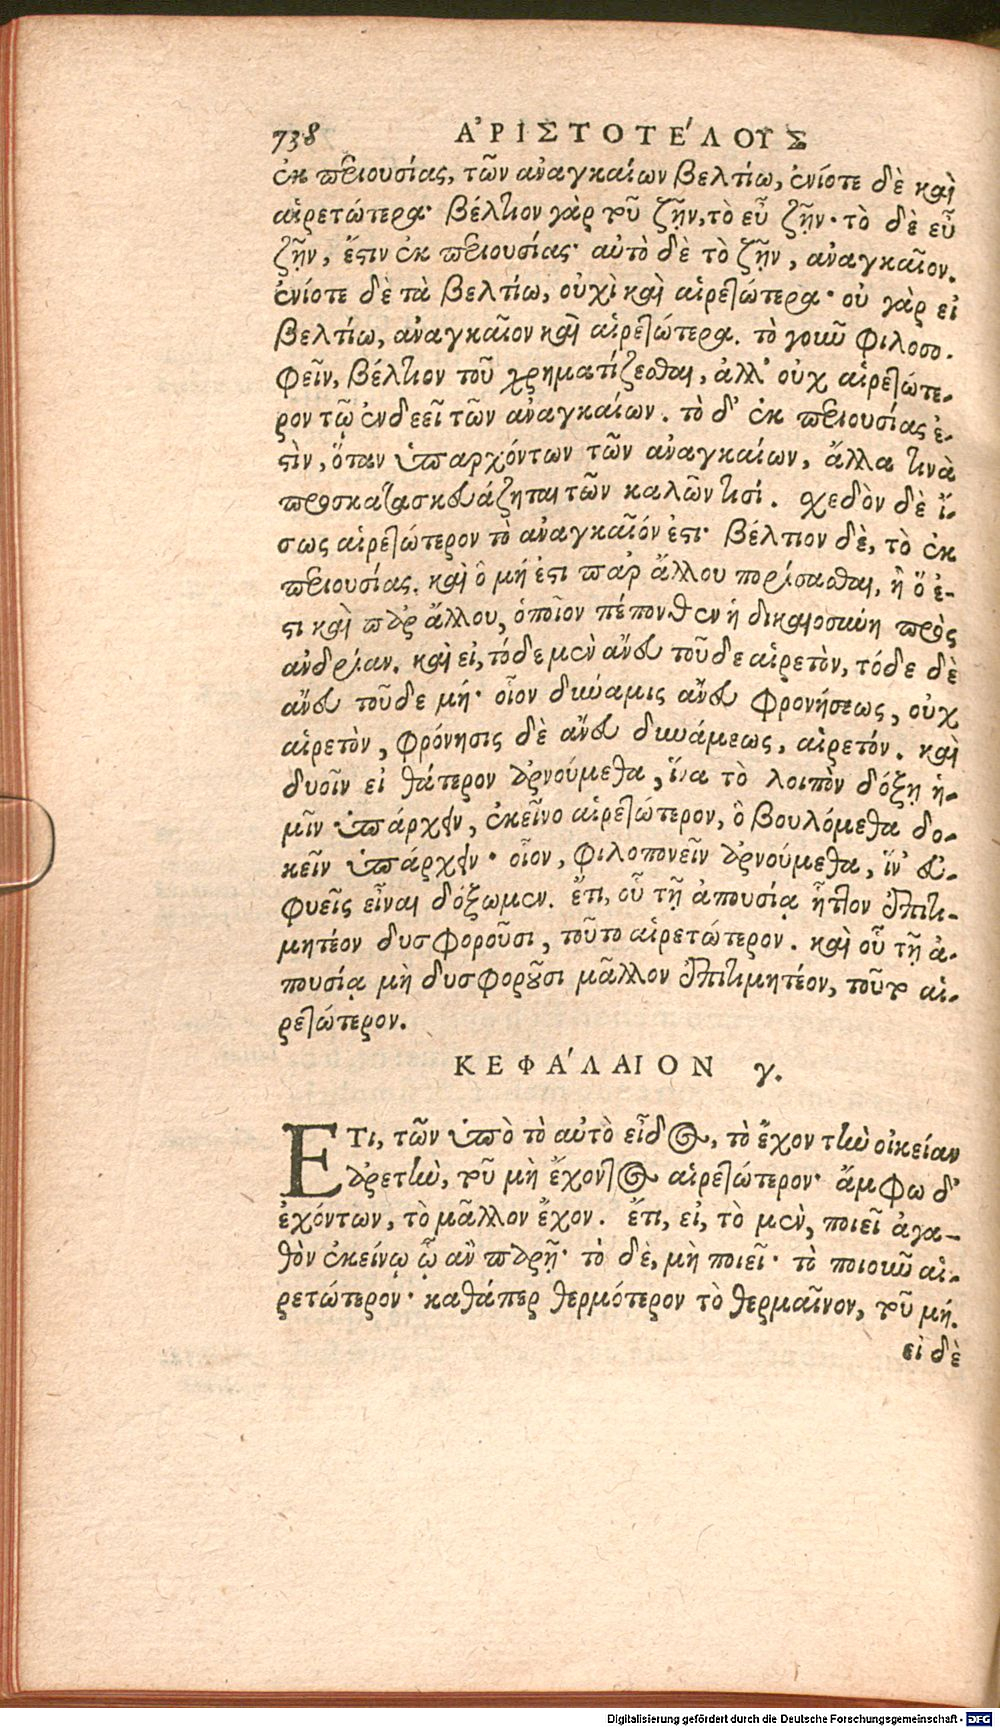 738 ἈΡΙΣΤΟΤΈΛΟΥΣ
ἐκ περιουσίας, τῶν ἀναγκαίων βελτίω, ἐνίοτε δὲ καὶ
αἱρετώτερα· βέλτιον γὰρ τοῦ ζῆν, τὸ εὖ ζῆν· τὸ δὲ εὖ
ζῆν, ἔστιν ἐκ περιουσίας· αὐτὸ δὲ τὸ ζῆν, ἀναγκαῖον.
ἐνίοτε δὲ τὰ βελτίω, οὐχὶ καὶ αἱρετώτερα· οὐ γὰρ εἰ
βελτίω, ἀναγκαῖον καὶ αἱρετώτερα. τὸ γοῦν φιλοσο-
φεῖν, βέλτιον τοῦ χρηματίζεσθαι, ἀλλ' οὐχ αἱρετώτε-
ρον τῷ ἐνδεεῖ τῶν ἀναγκαίων. τὸ δ' ἐκ περιουσίας ἐ-
στὶν, ὅταν ὑπαρχόντων τῶν ἀναγκαίων, ἄλλα τινὰ
προσκατασκευάζηται τῶν καλῶν τισί. σχεδὸν δὲ ἴ-
σως αἱρετώτερον τὸ ἀναγκαῖόν ἐστι· βέλτιον δὲ, τὸ ἐκ
περιουσίας. καὶ ὃ μή ἐστι παρ' ἄλλου πορίσασθαι, ἢ ὅ ἐ-
στι καὶ παρ' ἄλλου, ὁποῖον πέπονθεν ἡ δικαιοσύνη πρὸς
ἀνδρίαν. καὶ εἰ, τόδε μὲν ἄνευ τοῦδε αἱρετὸν, τόδε δὲ
ἄνευ τοῦδε μή· οἷον δύναμις ἄνευ φρονήσεως, οὐχ
αἱρετὸν, φρόνησις δὲ ἄνευ δυνάμεως, αἱρετόν. καὶ
δυοῖν εἰ θάτερον ἀρνούμεθα, ἵνα τὸ λοιπὸν δόξῃ ἡ-
μῖν ὑπάρχειν, ἐκεῖνο αἱρετώτερον, ὃ βουλόμεθα δο-
κεῖν ὑπάρχειν· οἷον, φιλοπονεῖν ἀρνούμεθα, ἵν' εὐ-
φυεῖς εἶναι δόξωμεν. ἔτι, οὗ τῇ ἀπουσίᾳ ἧττον ἐπιτι-
μητέον δυσφοροῦσι, τοῦτο αἱρετώτερον. καὶ οὗ τῇ ἀ-
πουσίᾳ μὴ δυσφοροῦσι μᾶλλον ἐπιτιμητέον, τοῦτο αἱ-
ρετώτερον.
ΚΕΦΆΛΑΙΟΝ γ.
ΕΤι, τῶν ὑπὸ τὸ αὐτὸ εἶδος, τὸ ἔχον τὴν οἰκείαν
ἀρετὴν, τοῦ μὴ ἔχοντος αἱρετώτερον· ἄμφω δ'
ἐχόντων, τὸ μᾶλλον ἔχον. ἔτι, εἰ, τὸ μὲν, ποιεῖ ἀγα-
θὸν ἐκείνῳ ᾧ ἂν παρῇ· τὸ δὲ, μὴ ποιεῖ· τὸ ποιοῦν αἱ-
ρετώτερον· καθάπερ θερμότερον τὸ θερμαῖνον, τοῦ μή.
εἰ δὲ
Digitalisierung gefördert durch die Deutsche Forschungsgemeinschaft - DFG